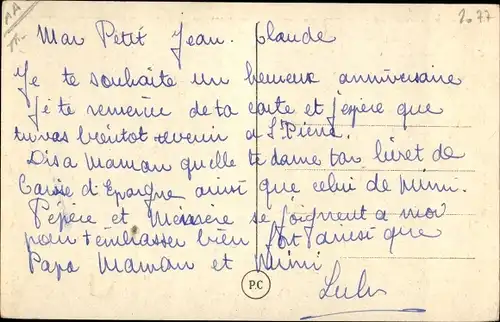 2077
AA
Mon Petit Jean. Claude
Je te souhaite un heureux anniversaire
Je te remercie de ta carte et j'espère que
tu vas bientot revenir a St Pierre.
Dis a Maman qu'elle te dame ton livret de
Caisse d'Epargne ainsi que celui de Mimi.
Pepère et Memère se joignent a moi
pour t'embrasser bien fort ainsi que
Papa Maman et Mimi
Lulu
P.C